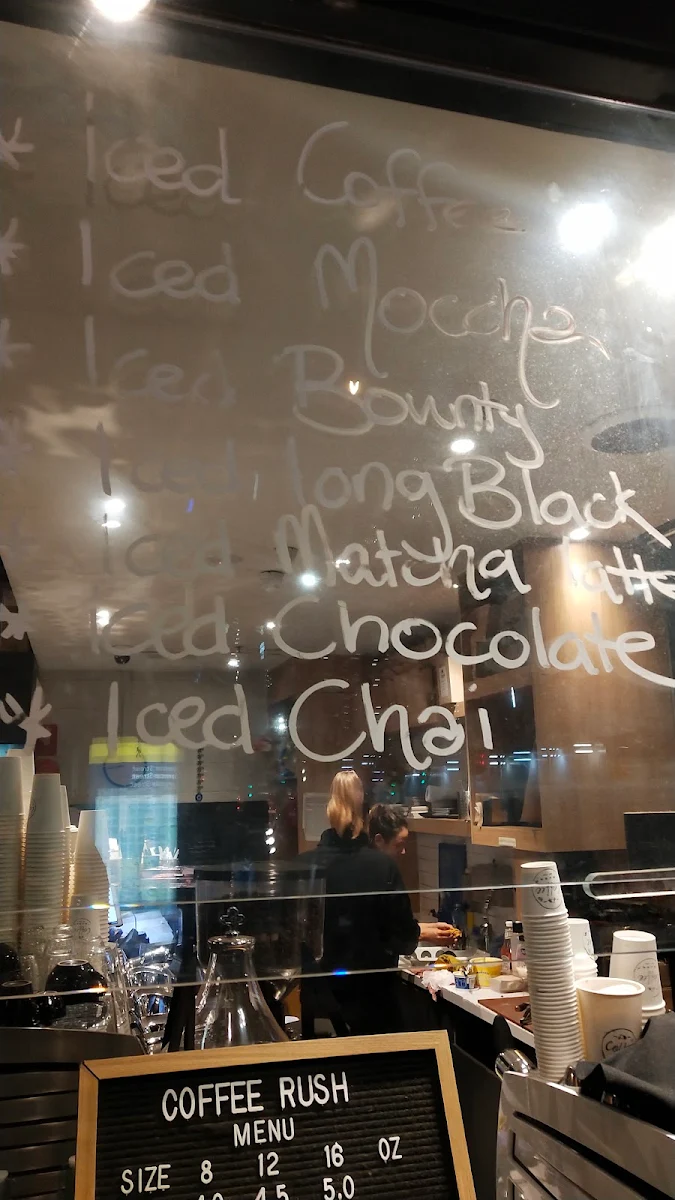 * Iced Coffee
* Iced Moccha
* Iced Bounty
* Iced long Black
* Iced Matcha latte
* Iced Chocolate
* Iced Chai
COFFEE RUSH
MENU
SIZE 8 12 16 OZ
4.5 5.0